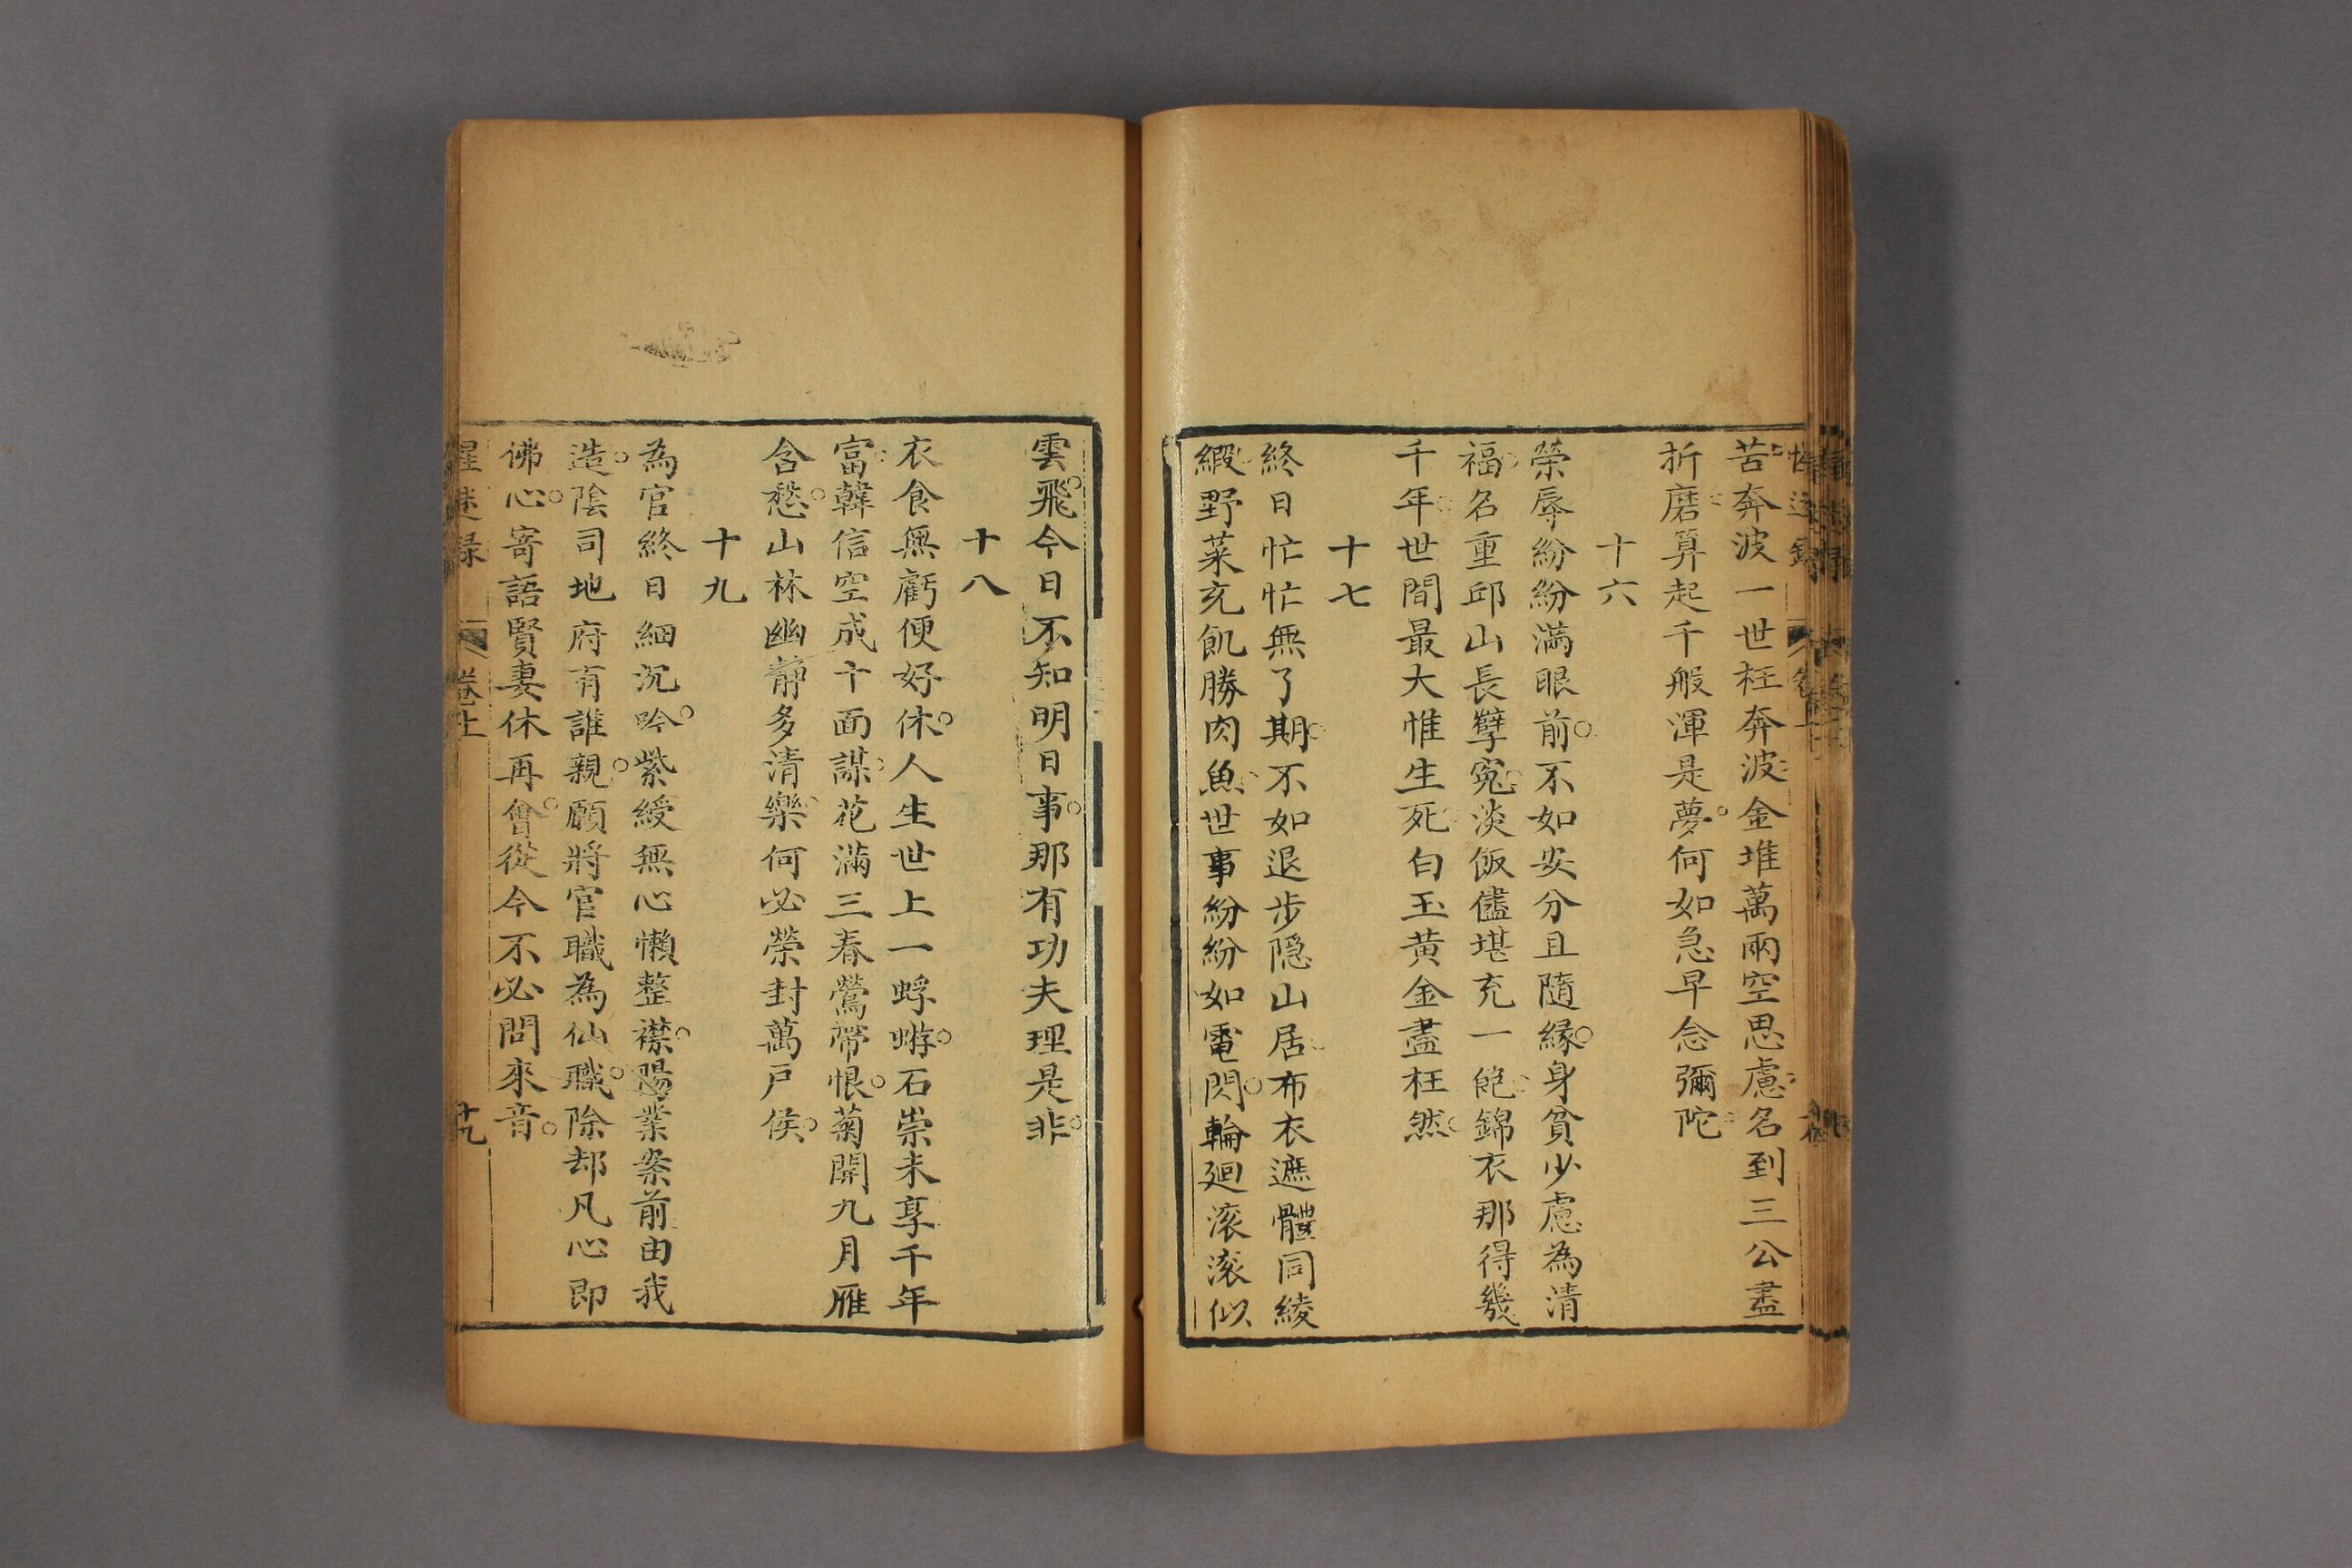 苦奔波一世枉奔波金堆萬兩空思慮名到三公盡
折磨算起千般渾是夢何如急早念彌陀
十六
榮辱紛紛滿眼前不如安分且隨緣身貧少慮為清
福名重邱山長孽冤淡飯儘堪充一飽錦衣那得幾
千年世間最大惟生死白玉黃金盡枉然
十七
終日忙忙無了期不如退步隱山居布衣遮體同綾
緞野菜充飢勝肉魚世事紛紛如電閃輪廻滚滚似
雲飛今日不知明日事那有功夫理是非
十八
衣食無虧便好休人生世上一蜉蝣石崇未享千年
富韓信空成十面謀花滿三春鶯帶恨菊開九月雁
含愁山林幽靜多清樂何必榮封萬戶侯
十九
為官終日細沉吟紫綬無心懶整襟陽業案前由我
造陰司地府有誰親願將官職為仙職除却凡心即
佛心寄語賢妻休再會從今不必問來音
醒迷錄 卷上 十九